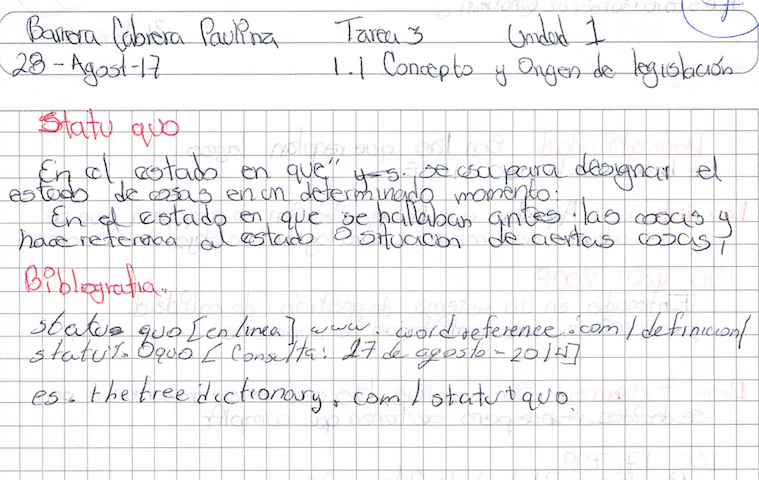 Barrera Cabrera Paulina Tarea 3 Unidad 1
28-Agost-17 1.1 Concepto y Origen de legislación
Statu quo
En el estado en que" y s. se usa para designar el
estado de cosas en un determinado momento.
En el estado en que se hallaban antes las cosas y
hace referencia al estado o situacion de ciertas cosas,
Bibliografia.
status quo [en linea] www. wordreference.com/definicion/
statu%0quo [Consulta: 27 de agosto-2017]
es. thefreedictionary.com/statu+quo.